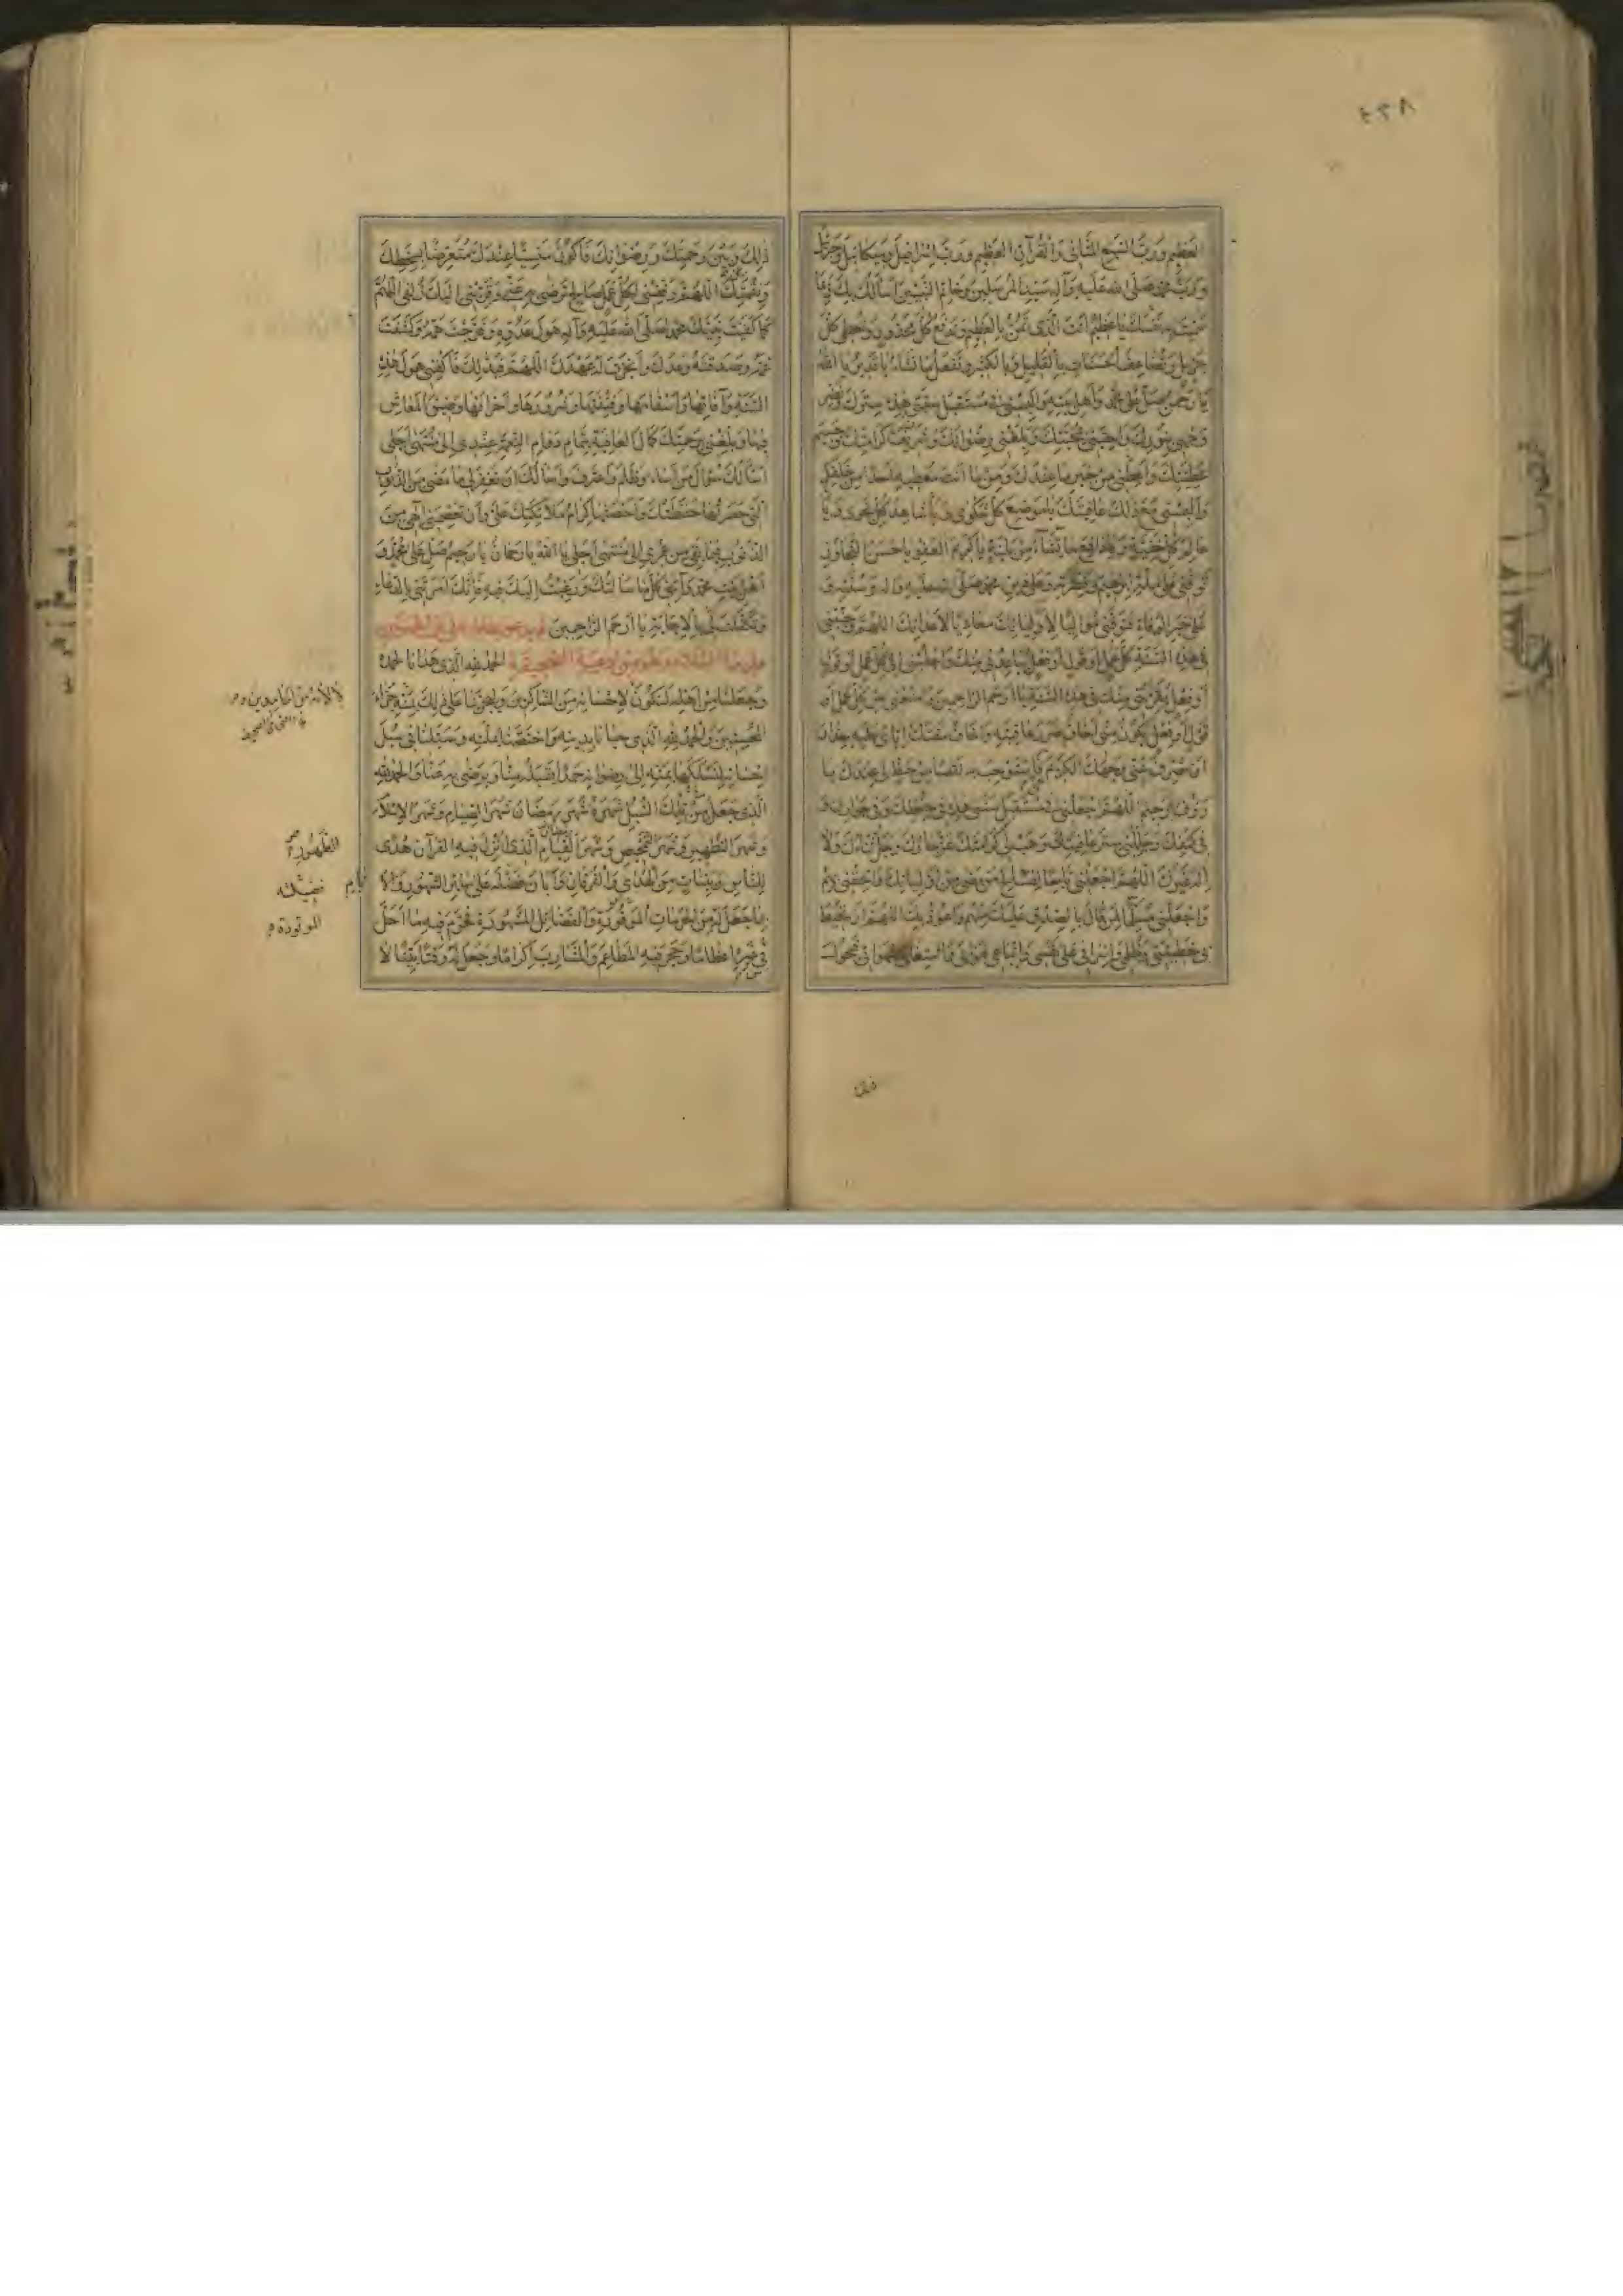 العَظِيمِ وَرَبَّ السَّبْعِ المَثَانِي وَالقُرْآنِ العَظِيمِ وَرَبَّ اِسْرَافِيلَ وَمِيكَائِيلَ وَجَبْرَئِيلَ
وَرَبَّ مُحَمَّدٍ صَلَّى اللهُ عَلَيْهِ وَآلِهِ سَيِّدِ المُرْسَلِينَ وَخَاتَمِ النَّبِيِّينَ اَسْأَلُكَ بِكَ وَبِمَا
سَمَّيْتَ بِهِ نَفْسَكَ يَا عَظِيمُ اَنْتَ الَّذِى تَمُنُّ بِالعَظِيمِ وَتَدْفَعُ كُلَّ مَحْذُورٍ وَتُعْطِى كُلَّ
جَزِيلٍ وَتُضَاعِفُ الحَسَنَاتِ بِالقَلِيلِ وَبِالكَثِيرِ وَتَفْعَلُ مَا تَشَاءُ يَا قَدِيرُ يَا اَللهُ
يَا رَحْمٰنُ صَلِّ عَلَى مُحَمَّدٍ وَاَهْلِ بَيْتِهِ وَاَلْبِسْنِى فِى مُسْتَقْبَلِ سَنَتِى هٰذِهِ سِتْرَكَ وَنَضِّرْ
وَجْهِى بِنُورِكَ وَاَحِبَّنِى بِمَحَبَّتِكَ وَبَلِّغْنِى رِضْوَانَكَ وَشَرِيفَ كَرَامَتِكَ وَجَسِيمَ
عَطِيَّتِكَ وَاَعْطِنِى مِنْ خَيْرِ مَا عِنْدَكَ وَمِنْ خَيْرِ مَا اَنْتَ مُعْطِيهِ اَحَدًا مِنْ خَلْقِكَ
وَاَلْبِسْنِى مَعَ ذٰلِكَ عَافِيَتَكَ يَا مَوْضِعَ كُلِّ شَكْوَى وَيَا شَاهِدَ كُلِّ نَجْوَى وَيَا
عَالِمَ كُلِّ خَفِيَّةٍ وَيَا دَافِعَ مَا تَشَاءُ مِنْ بَلِيَّةٍ يَا كَرِيمَ العَفْوِ يَا حَسَنَ التَّجَاوُزِ
تَوَفَّنِى عَلَى مِلَّةِ اِبْرٰهِيمَ وَفِطْرَتِهِ وَعَلَى دِينِ مُحَمَّدٍ صَلَّى اللهُ عَلَيْهِ وَآلِهِ وَسُنَّتِهِ وَ
عَلَى خَيْرِ الوَفَاةِ فَتَوَفَّنِى مُوَالِيًا لِاَوْلِيَائِكَ مُعَادِيًا لِاَعْدَائِكَ اَللّٰهُمَّ وَجَنِّبْنِى
فِى هٰذِهِ السَّنَةِ كُلَّ عَمَلٍ اَوْ قَوْلٍ اَوْ فِعْلٍ يُبَاعِدُنِى مِنْكَ وَاجْلِبْنِى اِلَى كُلِّ عَمَلٍ اَوْ قَوْلٍ
اَوْ فِعْلٍ يُقَرِّبُنِى مِنْكَ فِى هٰذِهِ السَّنَةِ يَا اَرْحَمَ الرَّاحِمِينَ وَامْنَعْنِى مِنْ كُلِّ عَمَلٍ اَوْ
قَوْلٍ اَوْ فِعْلٍ يَكُونُ مِنِّى اَخَافُ ضَرَرَ عَاقِبَتِهِ وَاَخَافُ مَقْتَكَ اِيَّاىَ عَلَيْهِ حِذَارَ
اَنْ تَصْرِفَ عَنِّى وَجْهَكَ الكَرِيمَ فَاَسْتَوْجِبَ بِهِ نَقْصًا مِنْ حَظٍّ لِى عِنْدَكَ يَا
رَؤُوفُ يَا رَحِيمُ اَللّٰهُمَّ اجْعَلْنِى فِى مُسْتَقْبَلِ سَنَتِى هٰذِهِ فِى حِفْظِكَ وَفِى جِوَارِكَ وَ
فِى كَنَفِكَ وَجَلِّلْنِى سِتْرَ عَافِيَتِكَ وَهَبْ لِى كَرَامَتَكَ عَزَّ جَارُكَ وَجَلَّ ثَنَاؤُكَ وَلَا
اِلٰهَ غَيْرُكَ اَللّٰهُمَّ اجْعَلْنِى تَابِعًا لِصَالِحِ مَنْ مَضَى مِنْ اَوْلِيَائِكَ وَاَلْحِقْنِى بِهِمْ
وَاجْعَلْنِى مُسَلِّمًا لِمَنْ قَالَ بِالصِّدْقِ عَلَيْكَ مِنْهُمْ وَاَعُوذُ بِكَ اللّٰهُمَّ اَنْ تُحِيطَ
بِى خَطِيئَتِى وَظُلْمِى وَاِسْرَافِى عَلَى نَفْسِى وَاتِّبَاعِى لِهَوَاىَ وَاشْتِغَالِى بِشَهَوَاتِى فَيَحُولَ
ذٰلِكَ بَيْنِى وَبَيْنَ رَحْمَتِكَ وَرِضْوَانِكَ فَاَكُونَ مَنْسِيًّا عِنْدَكَ مُتَعَرِّضًا لِسَخَطِكَ
وَنِقْمَتِكَ اَللّٰهُمَّ وَفِّقْنِى لِكُلِّ عَمَلٍ صَالِحٍ تَرْضَى بِهِ عَنِّى وَقَرِّبْنِى اِلَيْكَ زُلْفَى اَللّٰهُمَّ
كَمَا كَفَيْتَ نَبِيَّكَ مُحَمَّدًا صَلَّى اللهُ عَلَيْهِ وَآلِهِ هَوْلَ عَدُوِّهِ وَفَرَّجْتَ هَمَّهُ وَكَشَفْتَ
غَمَّهُ وَصَدَقْتَهُ وَعْدَكَ وَاَنْجَزْتَ لَهُ عَهْدَكَ اَللّٰهُمَّ فَبِذٰلِكَ فَاكْفِنِى هَوْلَ هٰذِهِ
السَّنَةِ وَآفَاتِهَا وَاَسْقَامَهَا وَفِتْنَتَهَا وَشُرُورَهَا وَاَحْزَانَهَا وَضِيقَ المَعَاشِ
فِيهَا وَبَلِّغْنِى بِرَحْمَتِكَ كَمَالَ العَافِيَةِ بِتَمَامِ دَوَامِ النِّعْمَةِ عِنْدِى اِلَى مُنْتَهَى اَجَلِى
اَسْأَلُكَ سُؤَالَ مَنْ اَسَاءَ وَظَلَمَ وَاعْتَرَفَ وَاَسْأَلُكَ اَنْ تَغْفِرَ لِى مَا مَضَى مِنَ الذُّنُوبِ
الَّتِى حَصَرَتْهَا حَفَظَتُكَ وَاَحْصَتْهَا كِرَامُ مَلَائِكَتِكَ عَلَىَّ وَاَنْ تَعْصِمَنِى اِلٰهِى مِنَ
الذُّنُوبِ فِيمَا بَقِىَ مِنْ عُمْرِى اِلَى مُنْتَهَى اَجَلِى يَا اَللهُ يَا رَحْمَانُ يَا رَحِيمُ صَلِّ عَلَى مُحَمَّدٍ وَ
اَهْلِ بَيْتِ مُحَمَّدٍ وَآتِنِى كُلَّ مَا سَأَلْتُكَ وَرَغِبْتُ اِلَيْكَ فِيهِ فَاِنَّكَ اَمَرْتَنِى بِالدُّعَاءِ
وَتَكَفَّلْتَ لِى بِالاِجَابَةِ يَا اَرْحَمَ الرَّاحِمِينَ ثم يدعو بدعاء على بن الحسين
عليهما السلام وهو من ادعية الصحيفة اَلْحَمْدُ لِلّٰهِ الَّذِى هَدَانَا لِحَمْدِهِ
وَجَعَلَنَا مِنْ اَهْلِهِ لِنَكُونَ لِاِحْسَانِهِ مِنَ الشَّاكِرِينَ وَلِيَجْزِيَنَا عَلَى ذٰلِكَ جَزَاءَ
المُحْسِنِينَ وَالحَمْدُ لِلّٰهِ الَّذِى حَبَانَا بِدِينِهِ وَاخْتَصَّنَا بِمِلَّتِهِ وَسَبَّلَنَا فِى سُبُلِ
اِحْسَانِهِ لِنَسْلُكَهَا بِمَنِّهِ اِلَى رِضْوَانِهِ حَمْدًا يَتَقَبَّلُهُ مِنَّا وَيَرْضَى بِهِ عَنَّا وَالحَمْدُ لِلّٰهِ
الَّذِى جَعَلَ مِنْ تِلْكَ السُّبُلِ شَهْرَهُ شَهْرَ رَمَضَانَ شَهْرَ الصِّيَامِ وَشَهْرَ الاِسْلَامِ
وَشَهْرَ التَّطْهِيرِ وَشَهْرَ التَّمْحِيصِ وَشَهْرَ القِيَامِ الَّذِى اُنْزِلَ فِيهِ القُرْآنُ هُدًى
لِلنَّاسِ وَبَيِّنَاتٍ مِنَ الهُدَى وَالفُرْقَانِ وَاَبَانَ فَضْلَهُ عَلَى سَائِرِ الشُّهُورِ
بِمَا جَعَلَ لَهُ مِنَ الحُرُمَاتِ المَوْفُورَةِ وَالفَضَائِلِ المَشْهُورَةِ فَحَرَّمَ فِيهِ مَا اَحَلَّ
فِى غَيْرِهِ اِعْظَامًا وَحَجَرَ فِيهِ المَطَاعِمَ وَالمَشَارِبَ اِكْرَامًا وَجَعَلَ لَهُ وَقْتًا بَيِّنًا لَا
الطهور
فضيلته